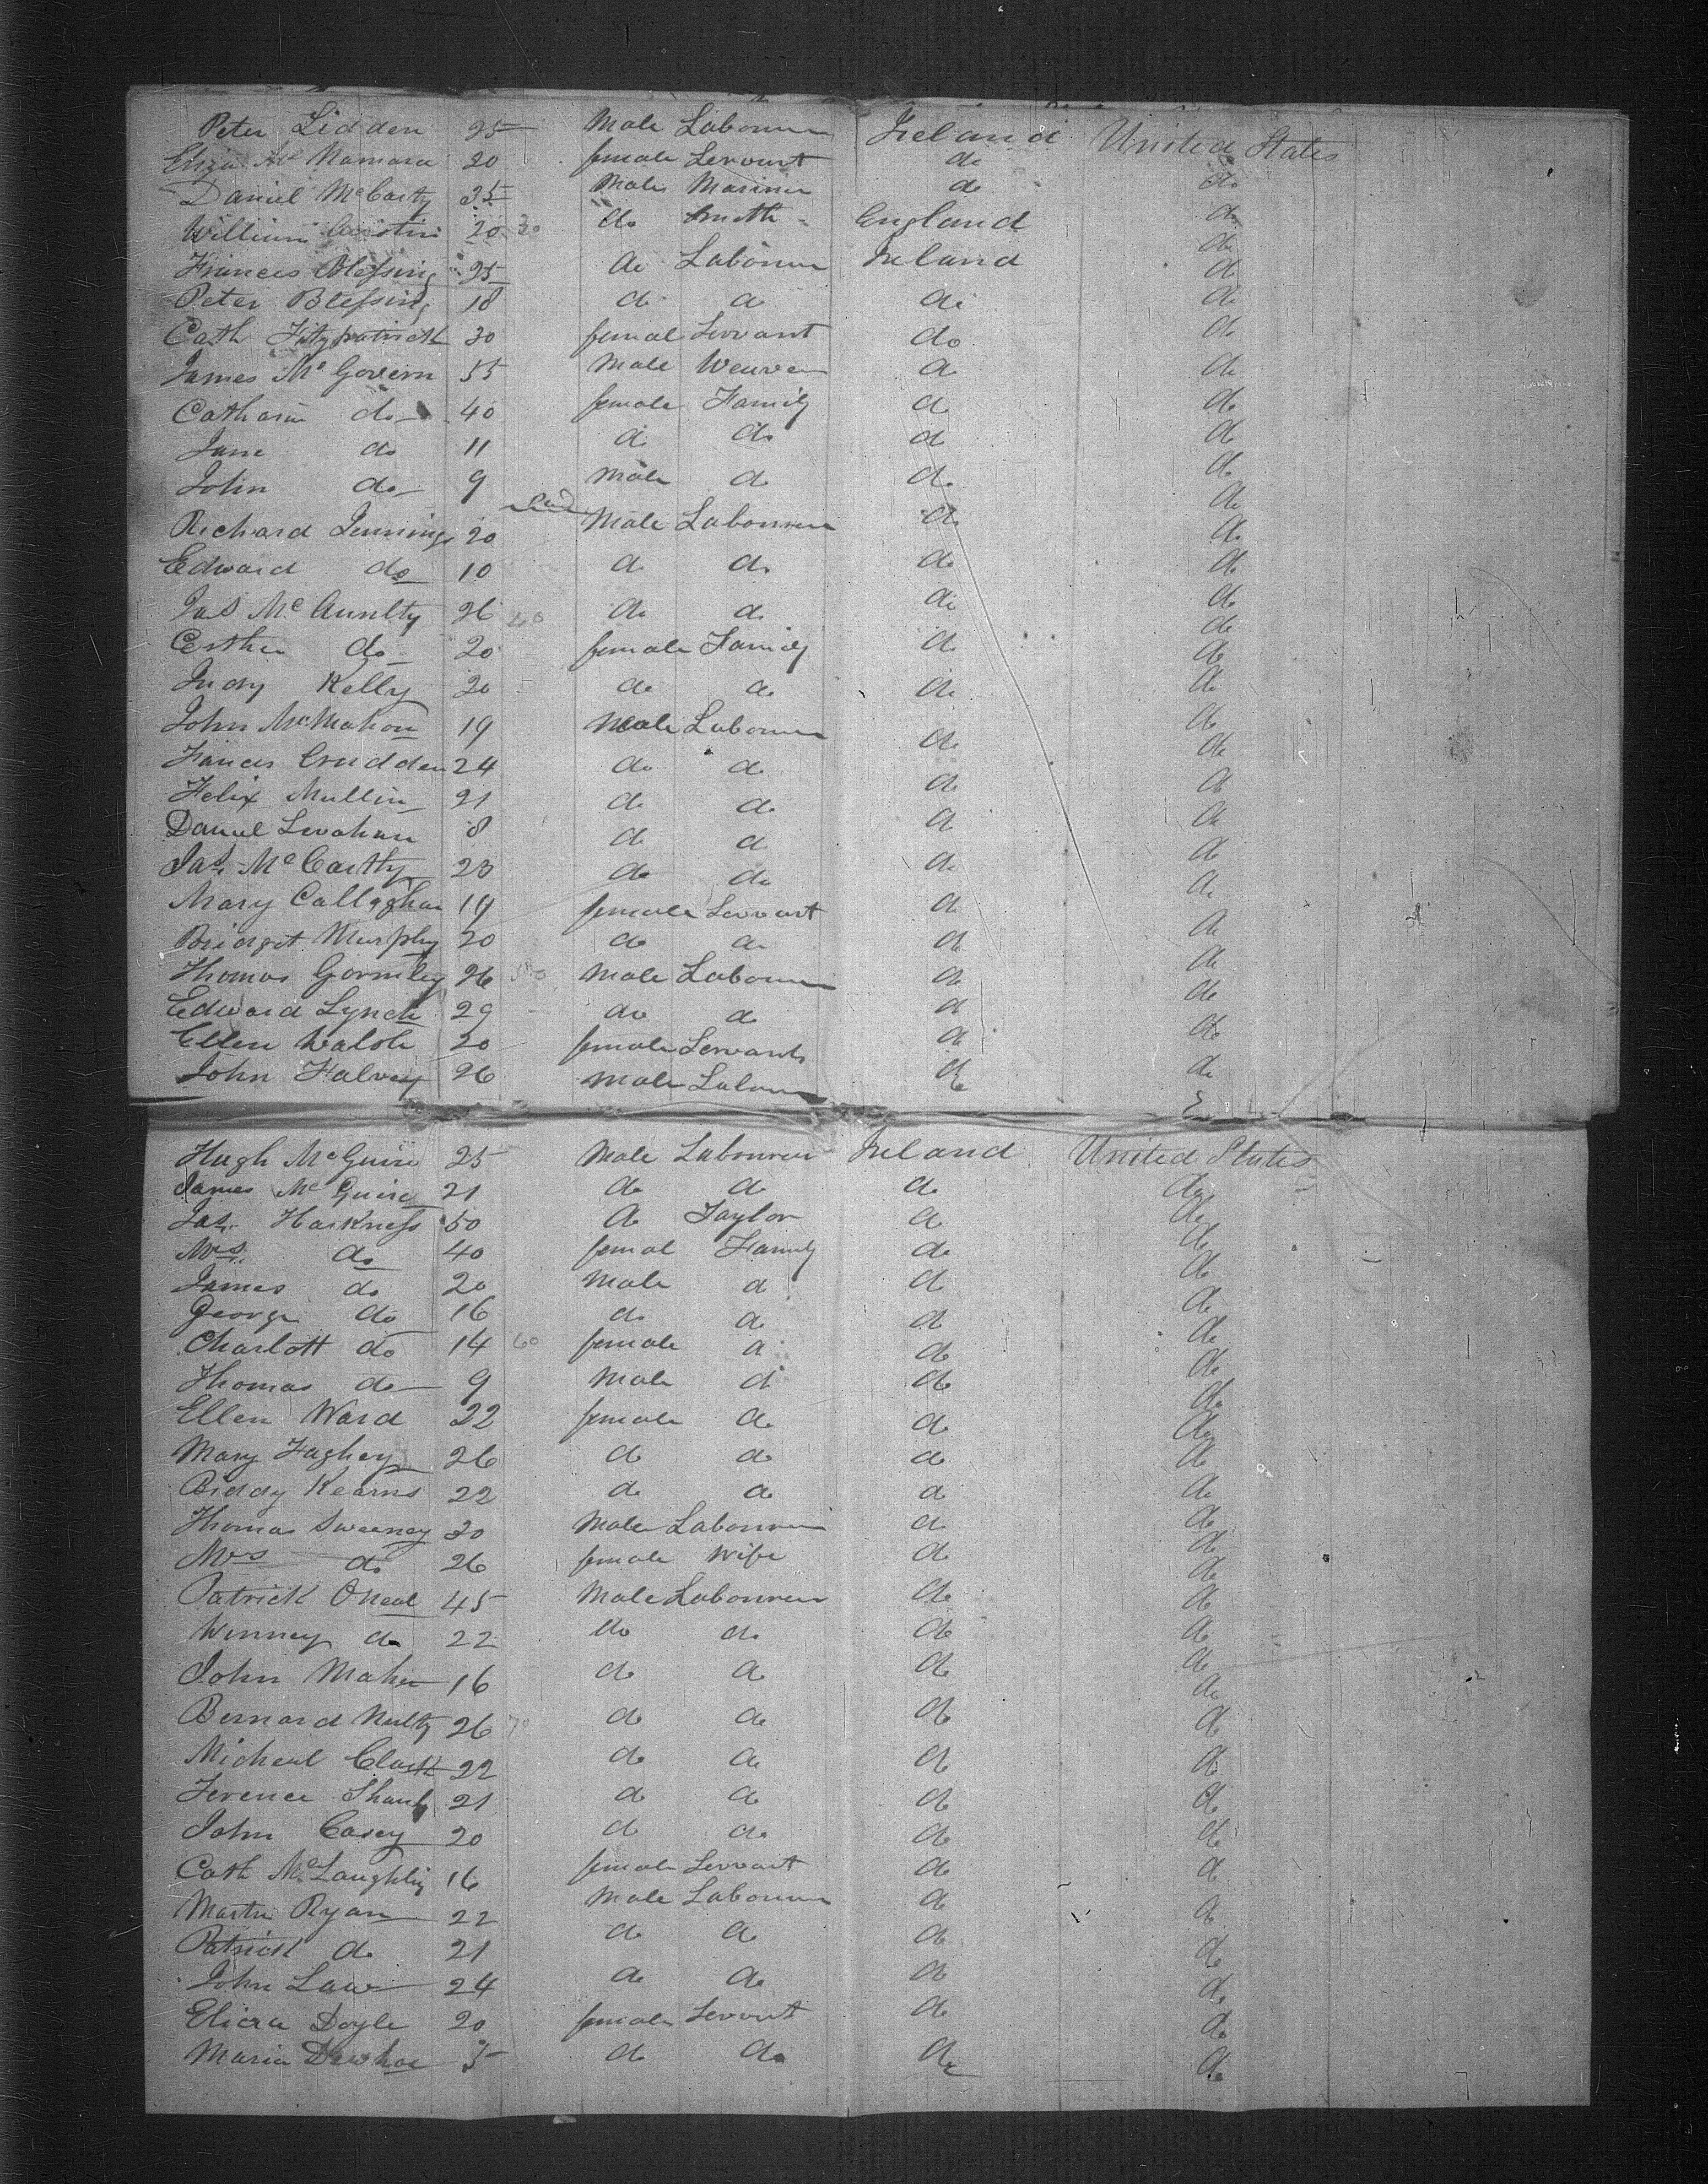 Peter Lidden 25 Male Labourer Ireland United States
Eliza McNamara 20 female Servant do do
Daniel McCarty 35 Male Mariner do do
William 20 30 do Smith England do
Frances Blessing 25 do Labourer Ireland do
Peter Blessing 18 do do do do
Cath Fitzpatrick 30 female Servant do do
James McGovern 55 Male Weaver do do
Catharine do 40 female Family do do
Jane do 11 do do do do
John do 9 Male do do do
Richard Jennings 20 Male Labourer do do
Edward do 10 do do do do
Jas McAnulty 26 40 do do do do
Esther do 20 female Family do do
Judy Kelly 20 do do do do
John McMahon 19 Male Labourer do do
Frances Crudden 24 do do do do
Felix Mullin 21 do do do do
Daniel 8 do do do do
Jas McCarthy 23 do do do do
Mary Callaghan 19 female Servant do do
Bridget Murphy 20 do do do do
Thomas Gormley 26 50 Male Labourer do do
Edward Lynch 29 do do do do
Ellen Walsh 20 female Servants do do
John Falvey 26 Male Labourer do do
Hugh McGuire 25 Male Labourer Ireland United States
James McGuire 21 do do do do
Jas. Harkness 50 do Taylor do do
Mrs. do 40 femal Family do do
James do 20 Male do do do
George do 16 do do do do
Charlott do 14 60 female do do do
Thomas do 9 Male do do do
Ellen Ward 22 female do do do
Mary Faghey 26 do do do do
Biddy Kearns 22 do do do do
Thomas Sweeney 30 Male Labourer do do
Mrs do 26 female Wife do do
Patrick ONeal 45 Male Labourer do do
Winney do 22 do do do do
John Maher 16 do do do do
Bernard Nulty 26 70 do do do do
Micheal Clark 22 do do do do
Terence 21 do do do do
John Casey 20 do do do do
Cath McLaughlin 16 female Servant do do
Martin Ryan 22 Male Labourer do do
Patrick do 21 do do do do
John Law 24 do do do do
Eliza Doyle 20 female Servant do do
Maria do do do do